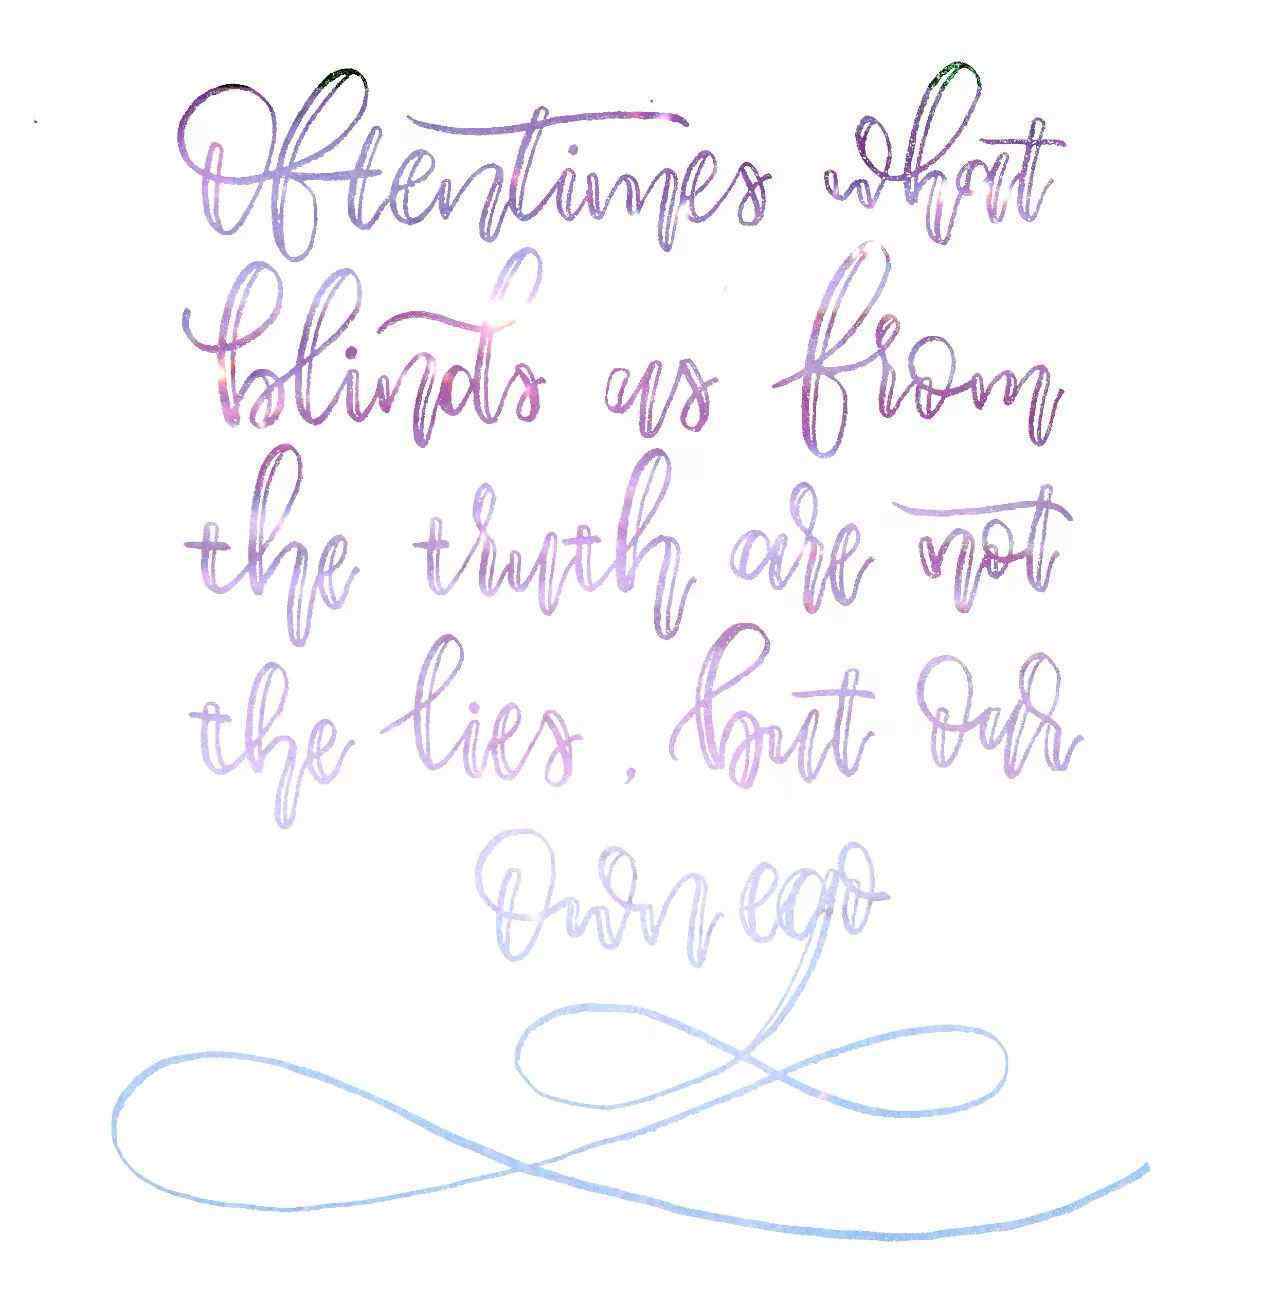 Oftentimes what
blinds us from
the truth are not
the lies, but our
Own ego